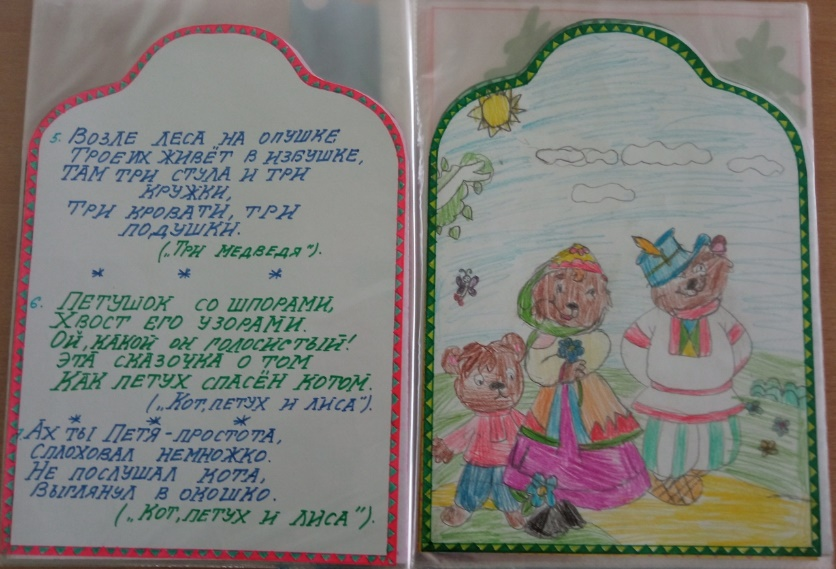 5. ВОЗЛЕ ЛЕСА НА ОПУШКЕ
ТРОЕ ИХ ЖИВЁТ В ИЗБУШКЕ,
ТАМ ТРИ СТУЛА И ТРИ
КРУЖКИ,
ТРИ КРОВАТИ, ТРИ
ПОДУШКИ.
(„ТРИ МЕДВЕДЯ").
* * *
6. ПЕТУШОК СО ШПОРАМИ,
ХВОСТ ЕГО УЗОРАМИ.
ОЙ, КАКОЙ ОН ГОЛОСИСТЫЙ!
ЭТА СКАЗОЧКА О ТОМ
КАК ПЕТУХ СПАСЁН КОТОМ.
(„КОТ, ПЕТУХ И ЛИСА").
* * *
АХ ТЫ ПЕТЯ - ПРОСТОТА,
СПЛОХОВАЛ НЕМНОЖКО.
НЕ ПОСЛУШАЛ КОТА,
ВЫГЛЯНУЛ В ОКОШКО.
(„КОТ, ПЕТУХ И ЛИСА").